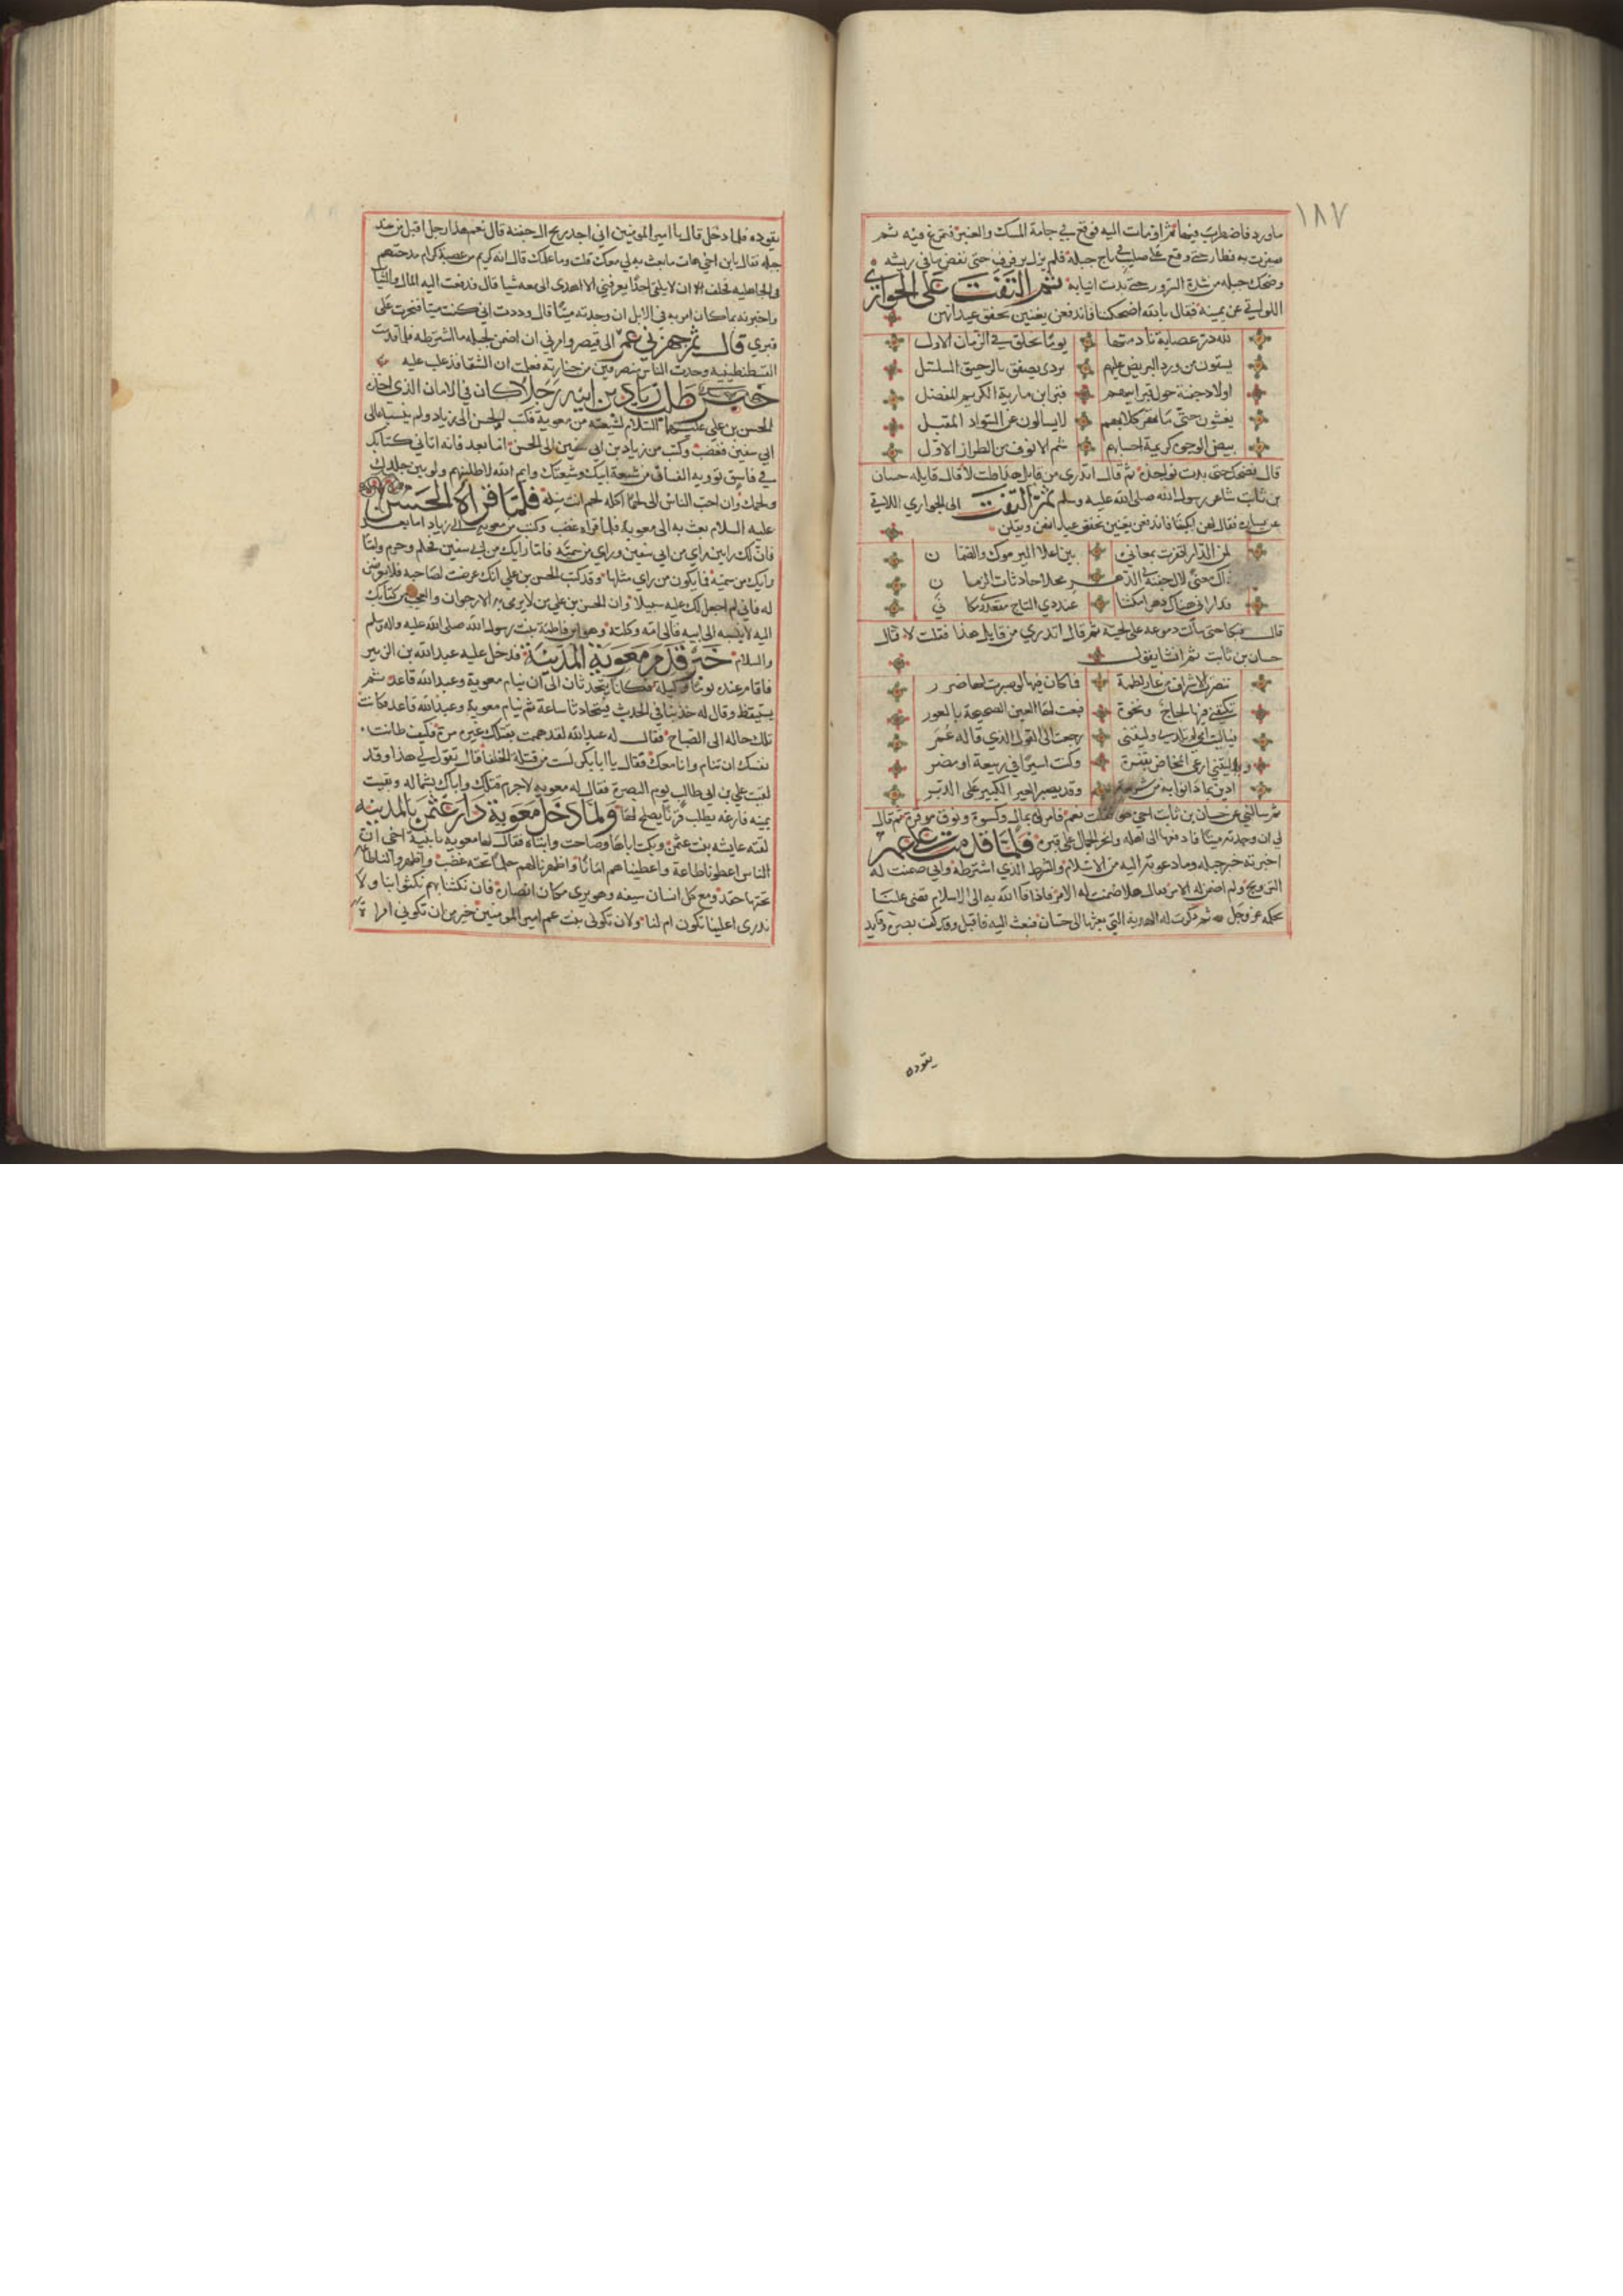 ١٨٧
ماورد فاضطرب فيها ثم اومات اليه فوقع في جامة المسك والعنبر فتمرغ فيه ثم
صفرت به فطار حتى وقع على صليب في تاج جبلة فلم يزل يرفرف حتى نفض ما في ريشه
وضحك جبله من شدة السرور حتى بدت انيابه ثمر التفت على الجواري
اللواتي عن يمينه فقال بالله اضحكننا فاندفعن يغنين بخفق عيدانهن
لله در عصابة نادمتها يوما بجلق في الزمان الاول
يسقون من ورد البريص عليهم بردى يصفق بالرحيق السلسل
اولاد جفنة حول قبر ابيهم قبر ابن مارية الكريم المفضل
يغشون حتى ما تهر كلابهم لا يسالون عن السواد المقبل
بيض الوجوه كريمة احسابهم شم الانوف من الطراز الاول
قال فضحك حتى بدت نواجذه ثم قال اتدري من قايل هذا قلت لا قال قايله حسان
بن ثابت شاعر رسول الله صلى الله عليه وسلم ثمر التفت الى الجواري اللاتي
عن يساره فقال لهن ابكيننا فاندفعن يغنين بخفق عيدانهن ويقلن
لمن الدار اقفرت بمعاني بين اعلا اليرموك والصمان
ذاك مغنى لال جفنة في الدهر محلا لحادثات الزمان
قد اراني هناك دهرا مكينا عند ذي التاج مقعدي ومكاني
قال فبكا حتى سالت دموعه على لحيته ثمر قال اتدري من قايل هذا فقلت لا قال
حسان بن ثابت ثمر انشا يقول
تنصرت الاشراف من عار لطمة وما كان فيها لو صبرت لها ضرر
تكنفني فيها لجاج ونخوة فبعت لها العين الصحيحة بالعور
فيا ليت امي لم تلدني وليتني رجعت الى القول الذي قاله عمر
ويا ليتني ارعى المخاض بقفرة وكنت اسيرا في ربيعة او مضر
ادين بما دانوا به من شريعة وقد يصبر العير الكبير على الدبر
ثمر سالني عن حسان بن ثابت احي هو فقلت نعم فامر لي بمال وكسوة ونوق موقرة ثم قال
لي ان وجدته ميتا فادفعها الى اهله وانحر الجمال على قبره فلما قدمت على عمر
اخبرته خبر جبله وما دعوته اليه من الاسلام والشرط الذي اشترطه واني ضمنت له
التزويج ولم اضمن له الامر فقال هلا ضمنت له الامر فاذا فا الله به الى الاسلام قضى علينا
بحكمه عز وجل ثم ذكرت له الهدية التي بعثها الى حسان فبعث اليه فاقبل وقد كف بصره وقايد
يقوده
يقوده فلما دخل قال يا امير المومنين اني اجد ريح ال جفنه قال نعم هذا رجل اقبل من عند
جبله فقال يابن اخي هات ما بعث به لي معك قلت وما علمك قال انه كريم من عصبة كرام مدحتهم
في الجاهليه فحلف ان لا يلقى احدا يعرفني الا اهدى الي معه شيا قال فدفعت اليه المال والثياب
واخبرته بما كان امر به في الابل ان وجدته ميتا قال وددت اني كنت ميتا فنحرت على
قبري قال ثم جهزني عمر الى قيصر وامرني ان اضمن لجبله ما اشترطه فلما قدمت
القسطنطينيه وجدت الناس منصرفين من جنازته فعلمت ان الشقا قد غلب عليه
خبر طلب زياد بن ابيه رجلا كان في الامان الذي اخذه
الحسن بن علي عليهما السلام لشيعته من معوية فكتب الحسن الى زياد ولم ينسبه الى
ابي سفين فغضب وكتب من زياد بن ابي سفين الى الحسن اما بعد فانه اتاني كتابك
في فاسق تؤويه الفساق من شيعة ابيك وشيعتك وايم الله لاطلبنهم ولو بين جلدك
ولحمك وان احب الناس الى لحما اكله لحم انت منه فلما قراه الحسن
عليه السلام بعث به الى معوية فلما قراه غضب وكتب من معوية الى زياد اما بعد
فان لك رايين راي من ابي سفين وراي من سمية فاما رايك من ابي سفين فحلم وحزم واما
رايك من سمية فما يكون من راي مثلها وقد كتب الحسن بن علي انك عرضت لصاحبه فلا تعرض
له فاني لم اجعل لك عليه سبيلا وان الحسن بن علي من لا يرمى به الارجوان والعجب من كتابك
اليه لا ينسبه الى ابيه فالى امه وكلته وهو ابن فاطمة بنت رسول الله صلى الله عليه واله وسلم
والسلام خبر قدم معوية المدينة فدخل عليه عبد الله بن الزبير
فاقام عنده يومه وليله فكانا يتحدثان الى ان ينام معوية وعبد الله قاعد ثمر
يستيقظ وقال له خذ بنا في الحديث فيتحادثا ساعة ثم ينام معوية وعبد الله قاعد فكانت
تلك حاله الى الصباح فقال له عبد الله لقد هممت بقتلك غير مرة فكيف طابت
نفسك ان تنام وانا معك فقال يا ابا بكر لست من قتلة الخلفا قال تقول لي هذا وقد
لقيت علي بن ابي طالب يوم البصرة فقال له معويه لا جرم قتلك واباك بشماله وبقيت
يمينه فارغه يطلب قرنا يصلح لها ولما دخل معوية دار عثمن بالمدينه
لقيته عايشه بنت عثمن وبكت اباها وصاحت وا ابتاه فقال لها معويه يا بنية اخي ان
الناس اعطونا طاعة واعطيناهم امانا واظهرنا لهم حلما تحته غضب واظهروا لنا طاعه
تحتها حقد ومع كل انسان سيفه وهو يرى مكان انصاره فان نكثنا بهم نكثوا بنا ولا
ندري اعلينا تكون ام لنا ولان تكوني بنت عم امير المومنين خير من ان تكوني امراة